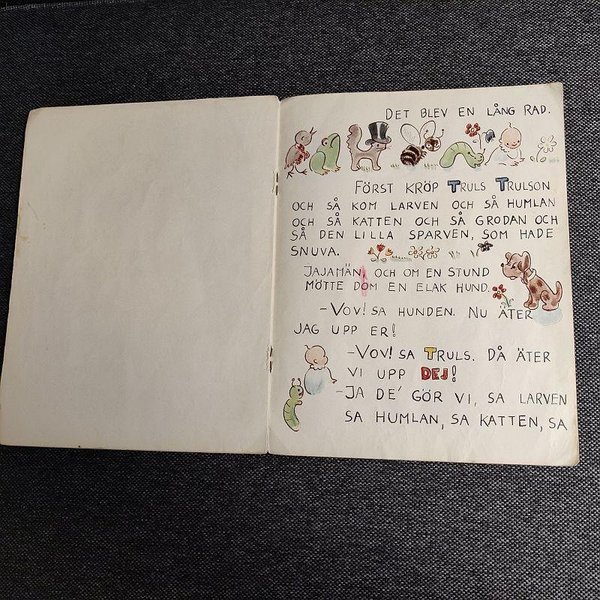 DET BLEV EN LÅNG RAD.
FÖRST KRÖP TRULS TRULSON
OCH SÅ KOM LARVEN OCH SÅ HUMLAN
OCH SÅ KATTEN OCH SÅ GRODAN OCH
SÅ DEN LILLA SPARVEN, SOM HADE
SNUVA.
JAJAMÄN, OCH OM EN STUND
MÖTTE DOM EN ELAK HUND.
–VOV! SA HUNDEN. NU ÄTER
JAG UPP ER!
–VOV! SA TRULS. DÅ ÄTER
VI UPP DEJ!
–JA DE' GÖR VI, SA LARVEN
SA HUMLAN, SA KATTEN, SA